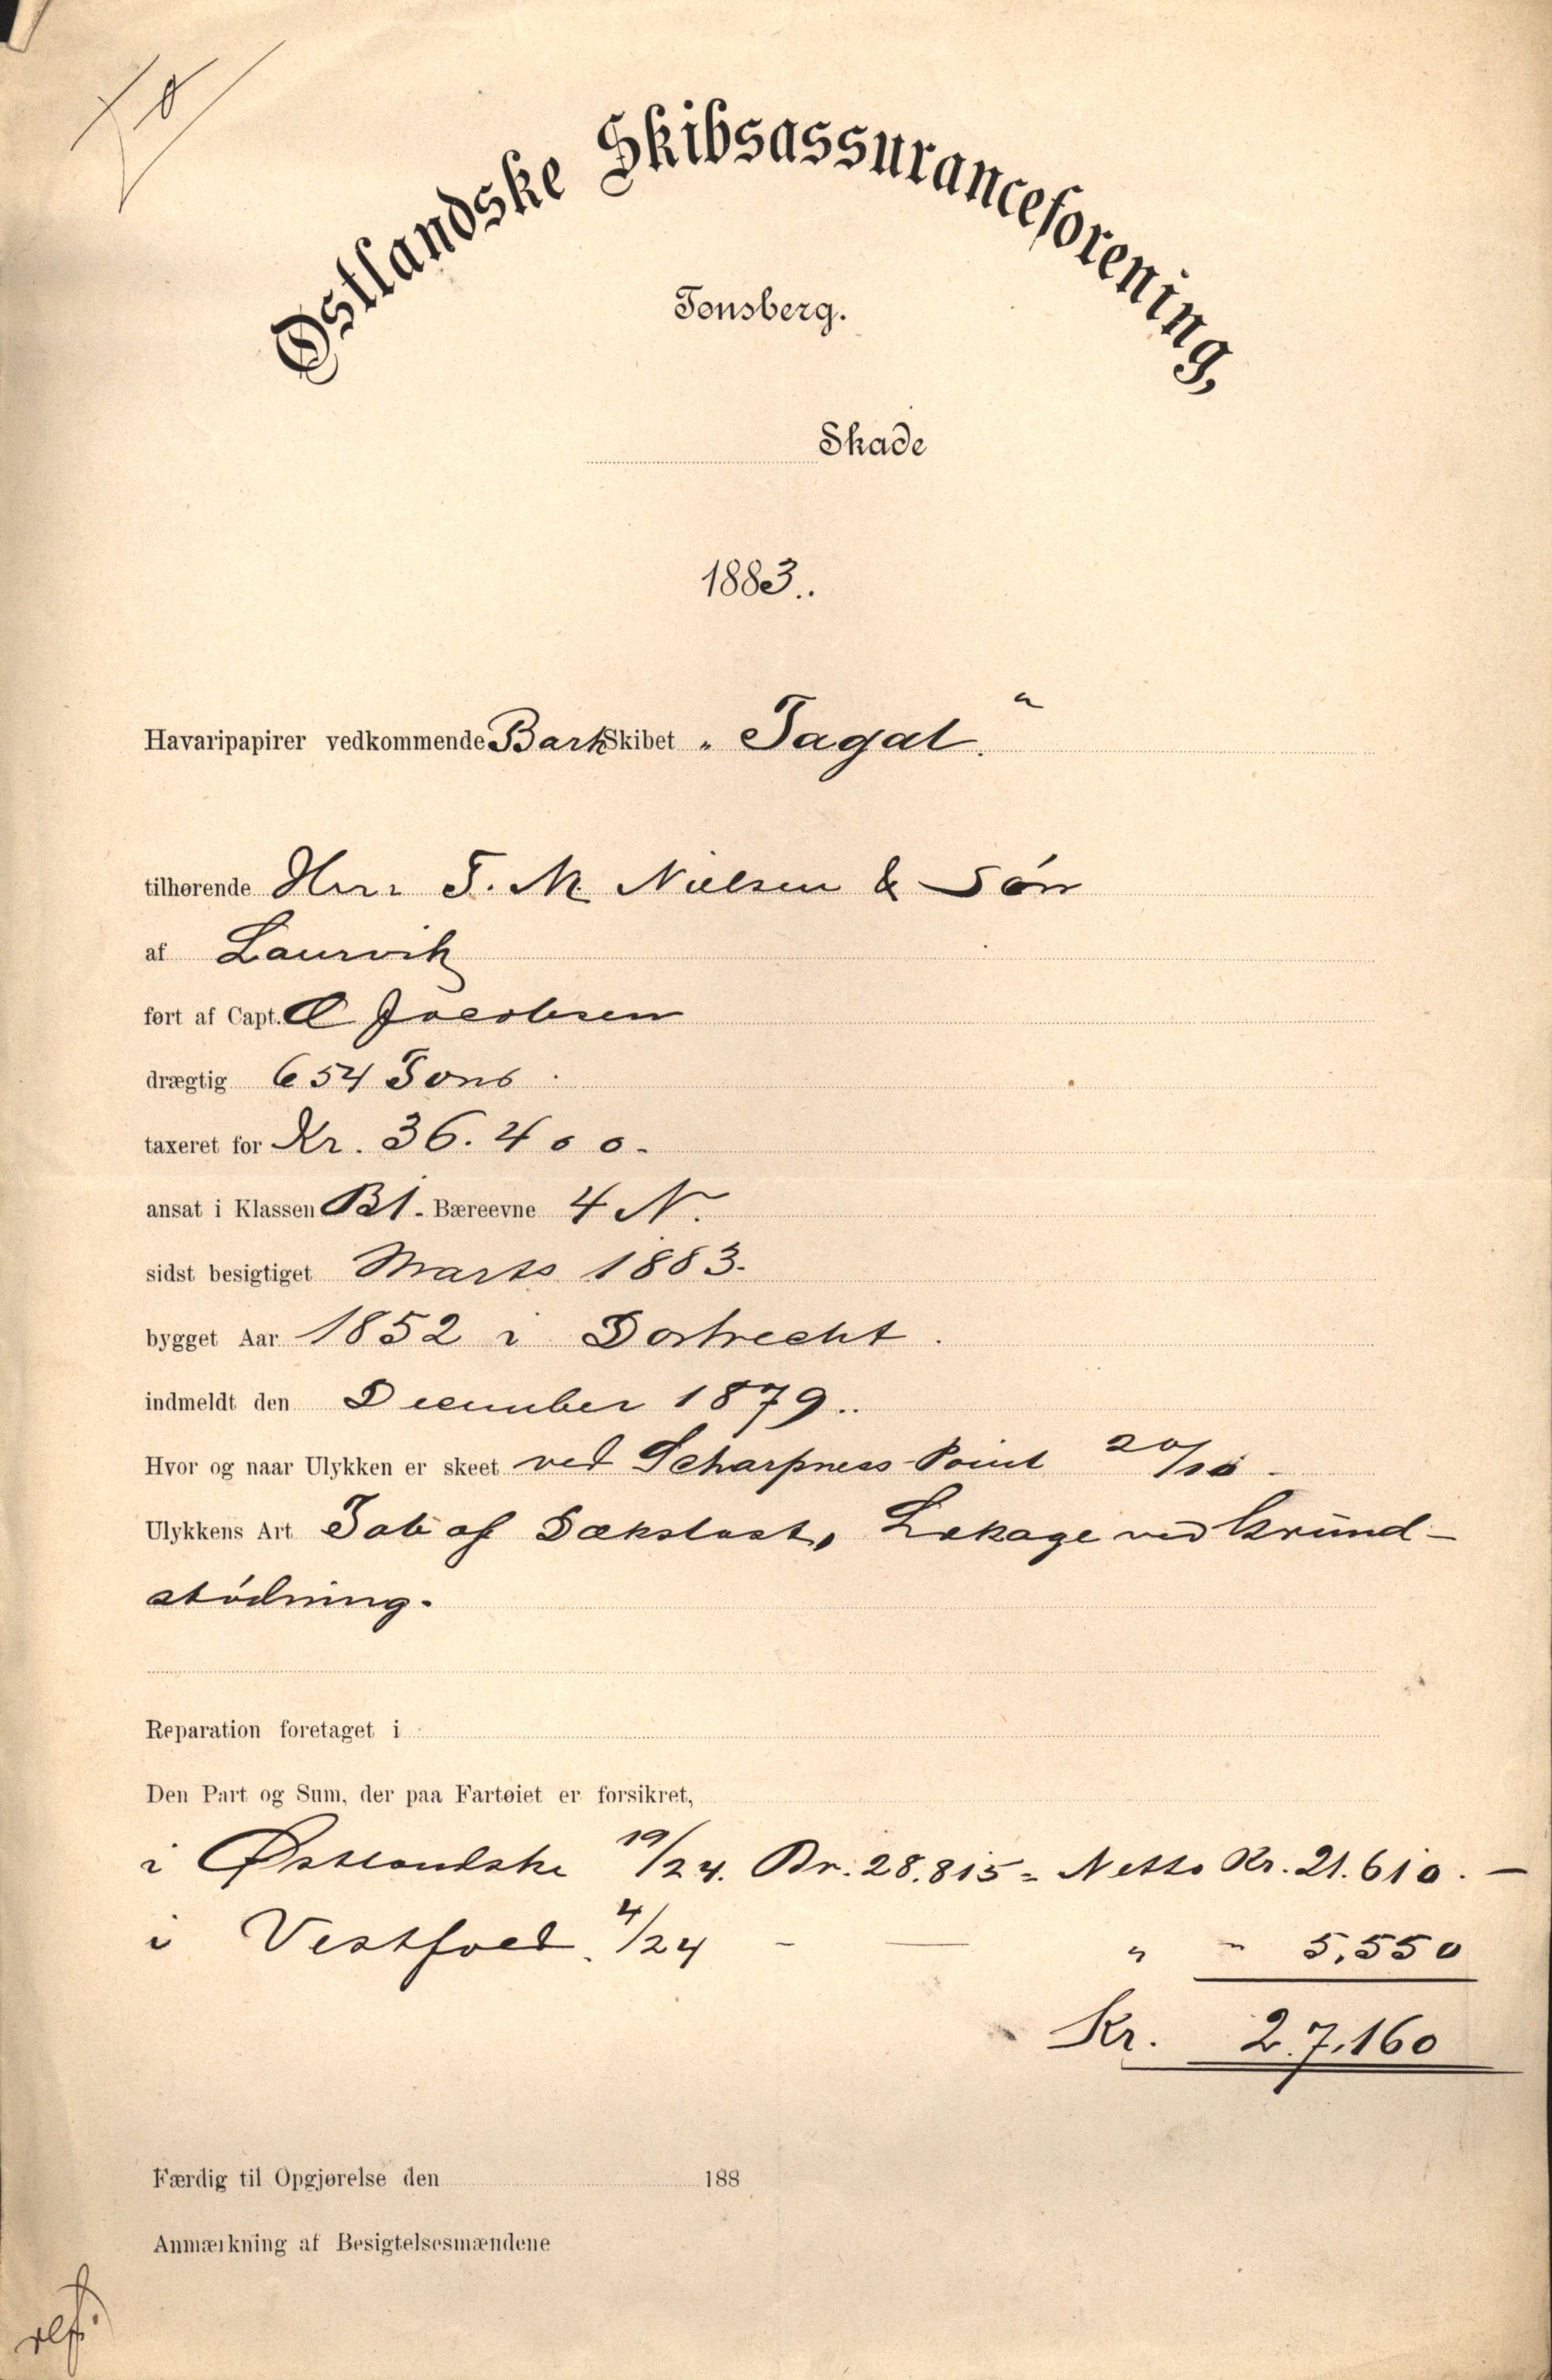 Østlandske Skibsassuranceforening,
Tønsberg.
Skade
1883.
Havaripapirer vedkommende Bark Skibet „Tagal“
tilhørende Herr T. M. Nielsen & Søn
af Laurvik
ført af Capt. O Jacobsen
drægtig 654 Tons
taxeret for Kr. 36.400.
ansat i Klassen B1. Bæreevne 4 N.
sidst besigtiget Marts 1883.
bygget Aar 1852 i Dortrecht.
indmeldt den December 1879.
Hvor og naar Ulykken er skeet ved Scharpness Point 20/10
Ulykkens Art Tab af Dækslast, Lekage ved Grund-
stødning.
Reparation foretaget i
Den Part og Sum, der paa Fartøiet er forsikret,
i Østlandske 19/24. Br. 28.815 = Netto Kr. 21.610. —
i Vestfold. 4/24 - — „ - 5,550
Kr. 27,160
Færdig til Opgjørelse den 188
Anmærkning af Besigtelsesmændene